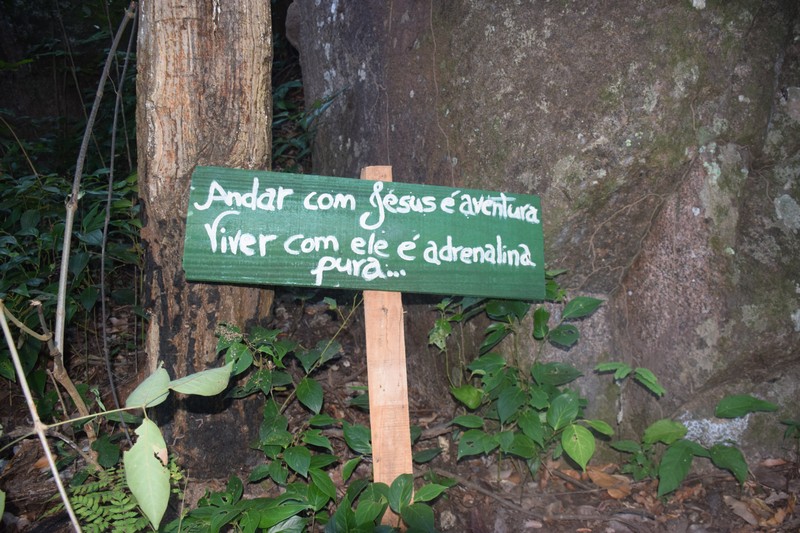 Andar com Jesus é aventura
Viver com ele é adrenalina
pura...